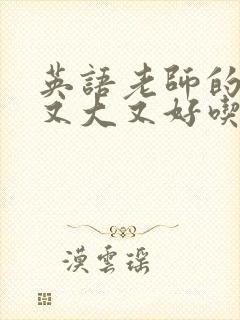 英語老師的
又大又好喫
漠雲瑶